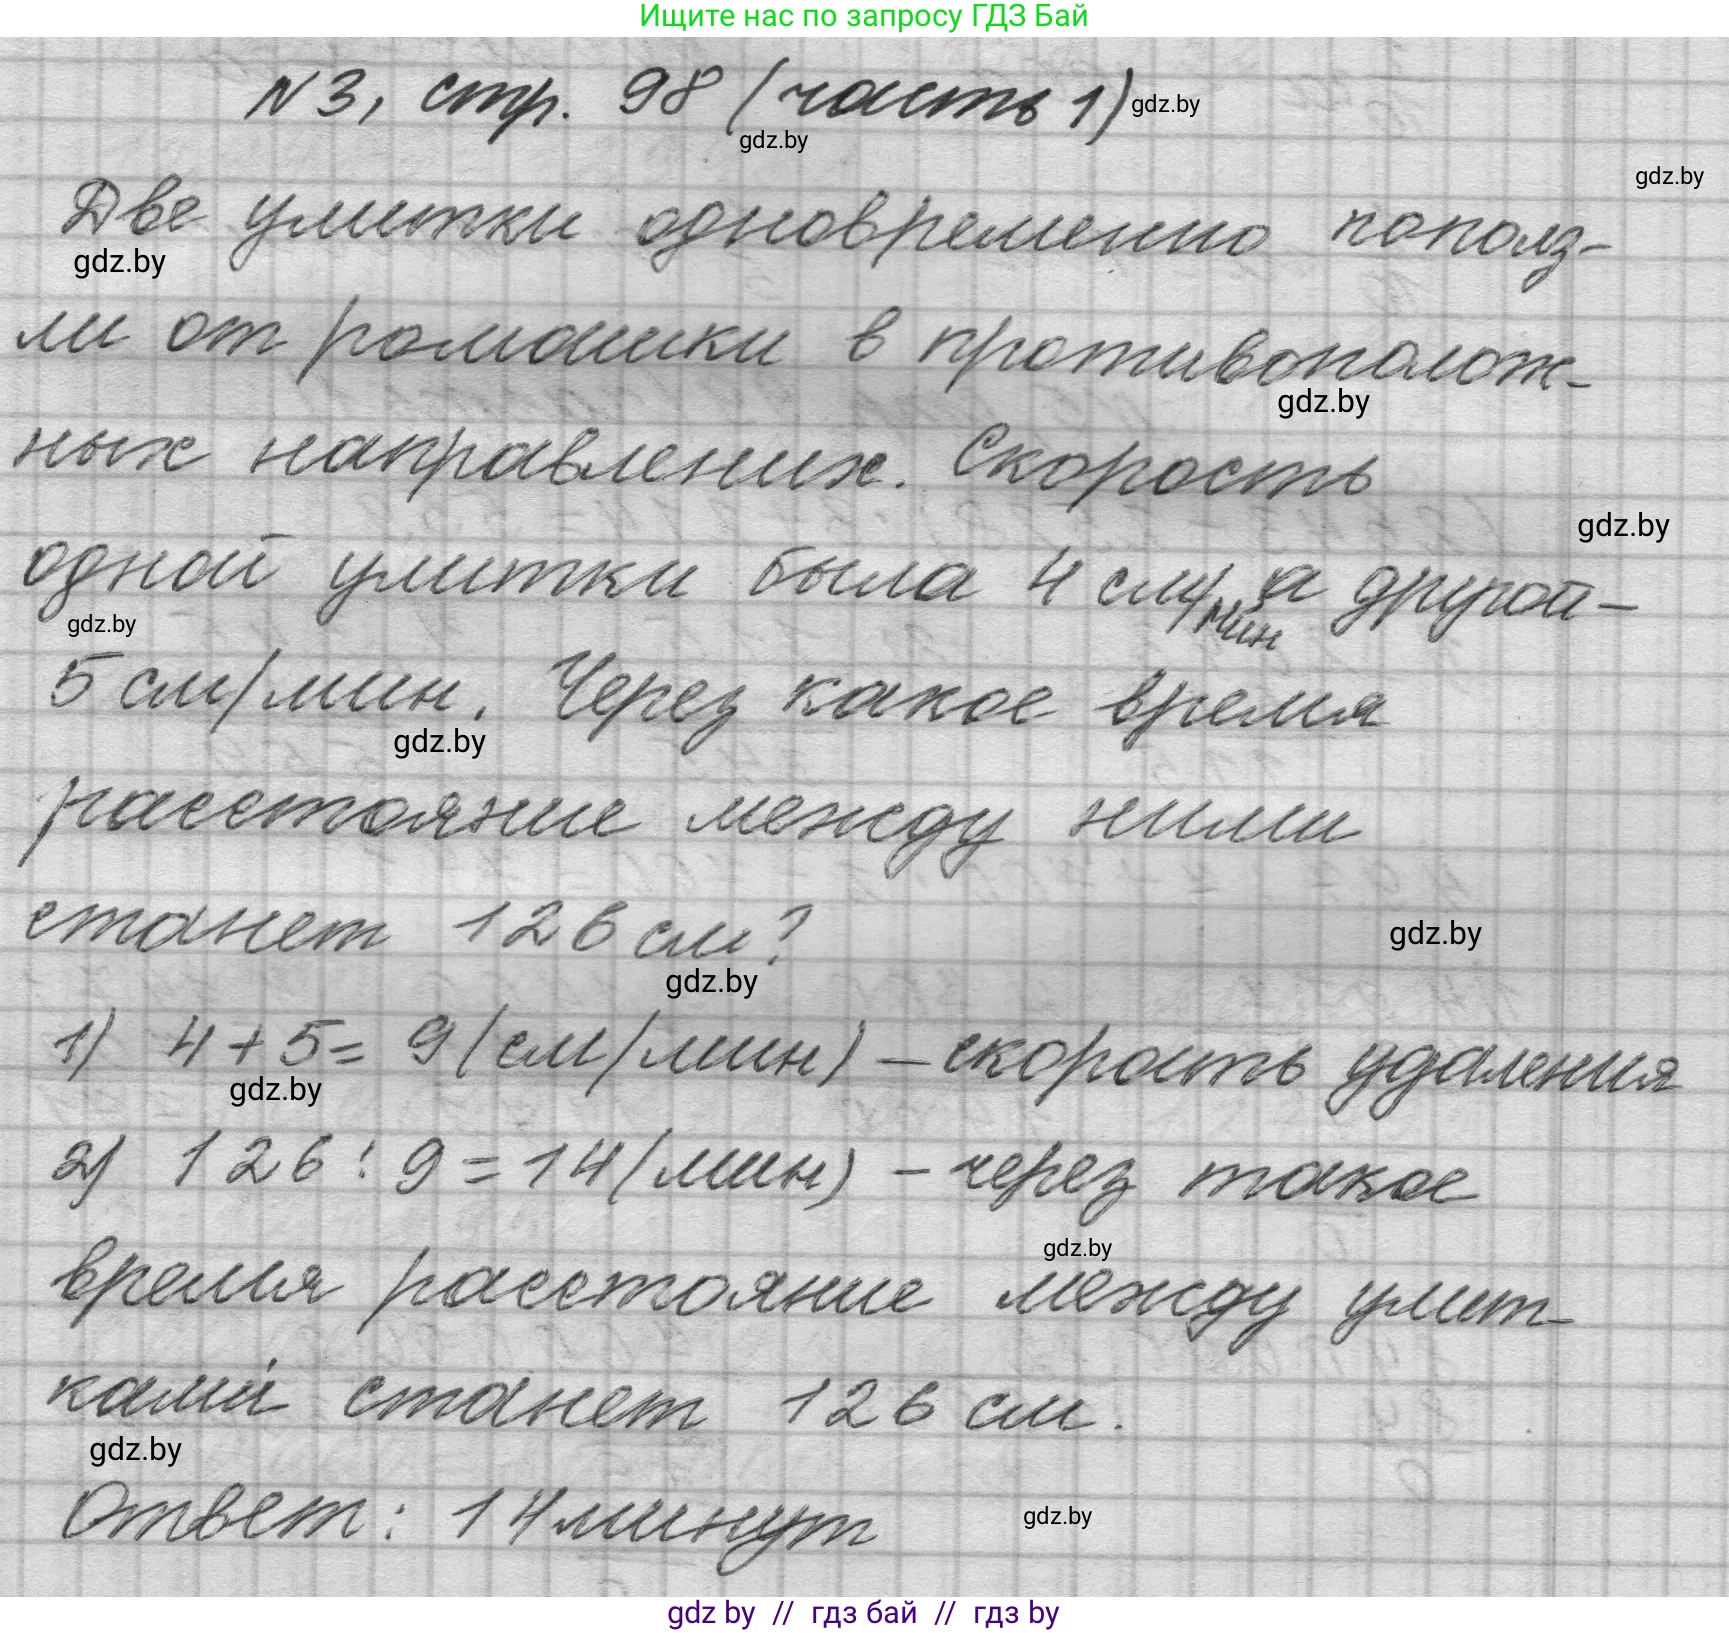 Ищите нас по запросу ГДЗ Бай
N3, стр. 98 (часть 1) gdz.by
gdz.by
gdz.by
Две улитки одновременно пополз-
gdz.by
ли от ромашки в противополож-
gdz.by
ных направлених. Скорость
gdz.by
одной улитки была 4 см/мин а другой-
gdz.by
5 см/мин. Через какое время
gdz.by
расстояние между ними
станет 126 см?
gdz.by
gdz.by
1) 4+5= 9(см/мин) - скорость удаления
gdz.by
2) 126:9=14(мин) - через такое
gdz.by
время расстояние между улит-
ками станет 126 см.
gdz.by
Ответ: 14 минут
gdz.by
gdz by // гдз бай // гдз by